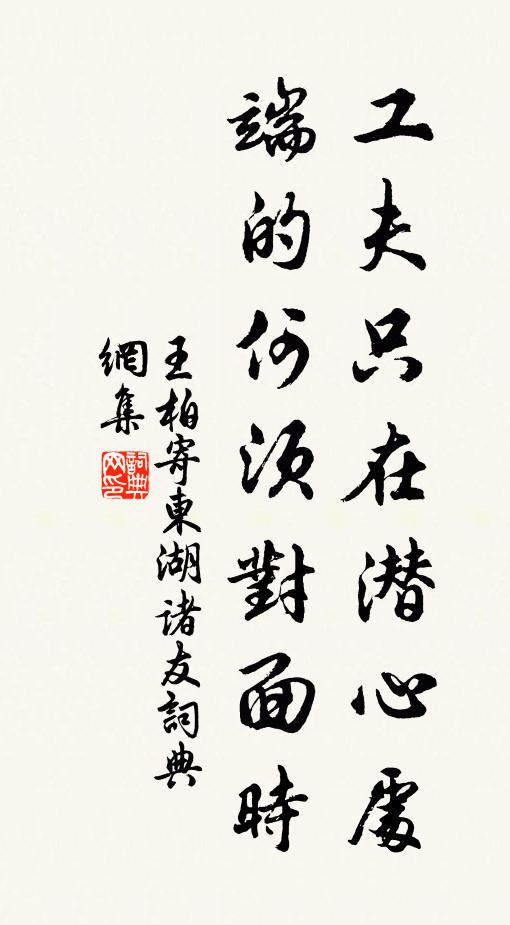 工夫只在潜心處
端的何須對面時
王柏寄東湖諸友詞典
網集
詞典網印